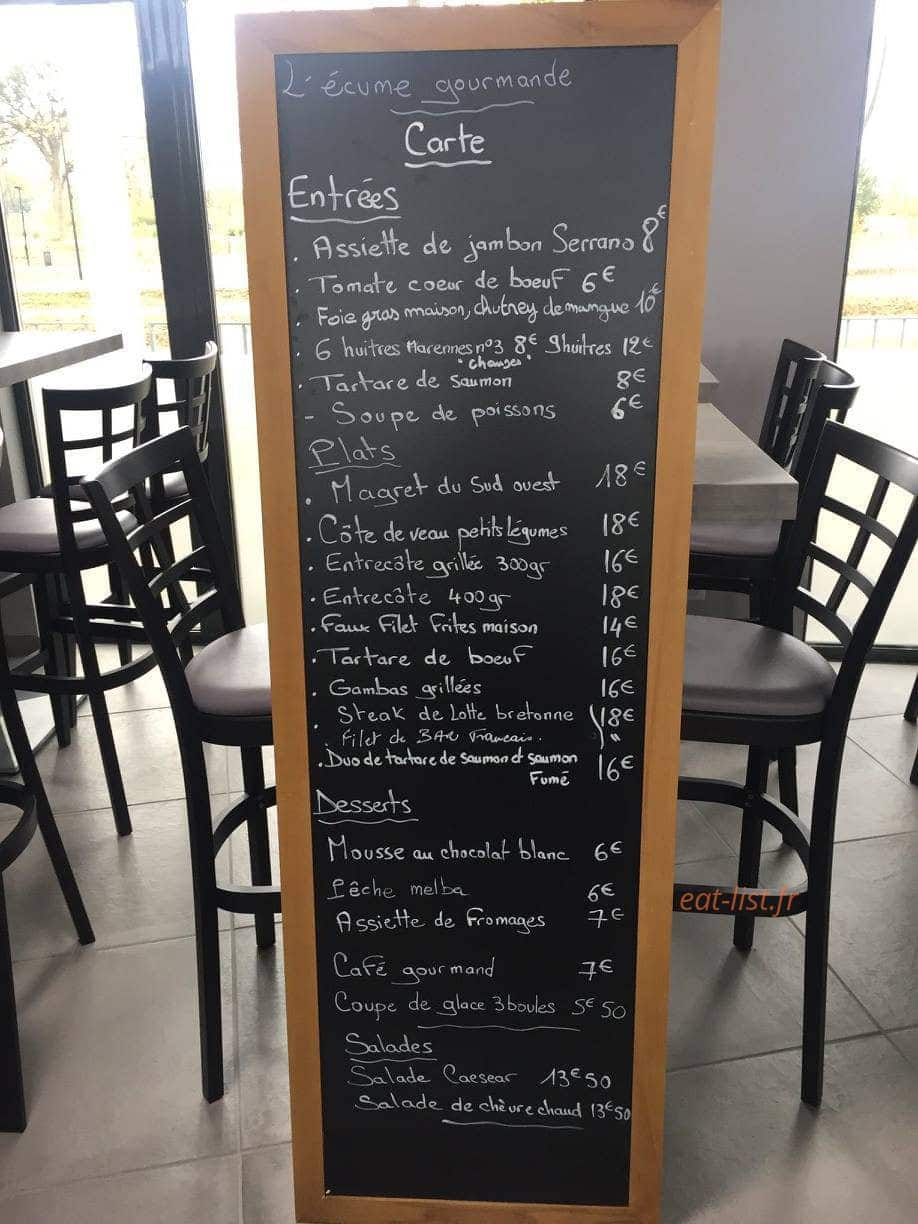 L'écume gourmande
Carte
Entrées
. Assiette de jambon Serrano 8€
. Tomate coeur de boeuf 6€
. Foie gras maison, chutney de mangue 10€
. 6 huîtres Marennes n°3 8€ 9huîtres 12€
. Tartare de saumon 8€
- Soupe de poissons 6€
Plats
. Magret du Sud ouest 18€
. Côte de veau petits légumes 18€
. Entrecôte grillée 300gr 16€
. Entrecôte 400gr 18€
. Faux Filet frites maison 14€
. Tartare de boeuf 16€
. Gambas grillées 16€
. Steak de Lotte bretonne 18€
Filet de BAR Francais. "
. Duo de tartare de saumon et saumon
Fumé 16€
Desserts
Mousse au chocolat blanc 6€
Pêche melba 6€
Assiette de Fromages 7€
Café gourmand 7€
Coupe de glace 3 boules 5€50
Salades
Salade Caesear 13€50
Salade de chèvre chaud 13€50
eat-list.fr